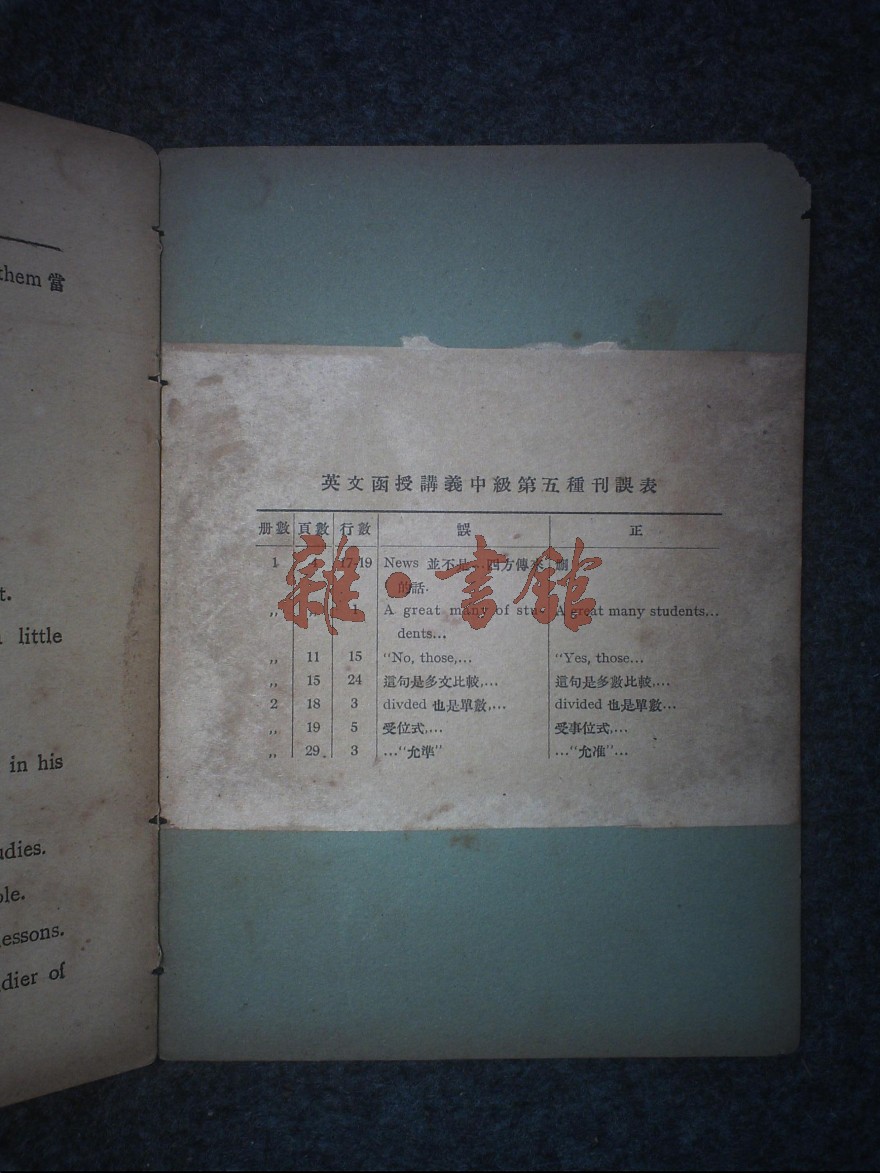 them 當
t.
little
in his
udies.
ble.
essons.
dier of
英文函授講義中級第五種刊誤表
册數 頁數 行數 誤 正
1 4 17-19 News 並不是...四方傳來 刪
的話.
„ 1 A great many of stu- A great many students...
dents...
„ 11 15 "No, those,... "Yes, those...
„ 15 24 這句是多文比較,... 這句是多數比較,...
2 18 3 divded 也是單數,... divided 也是單數...
„ 19 5 受位式,... 受事位式,...
„ 29 3 ..."允準" ..."允准"...
雜·書館